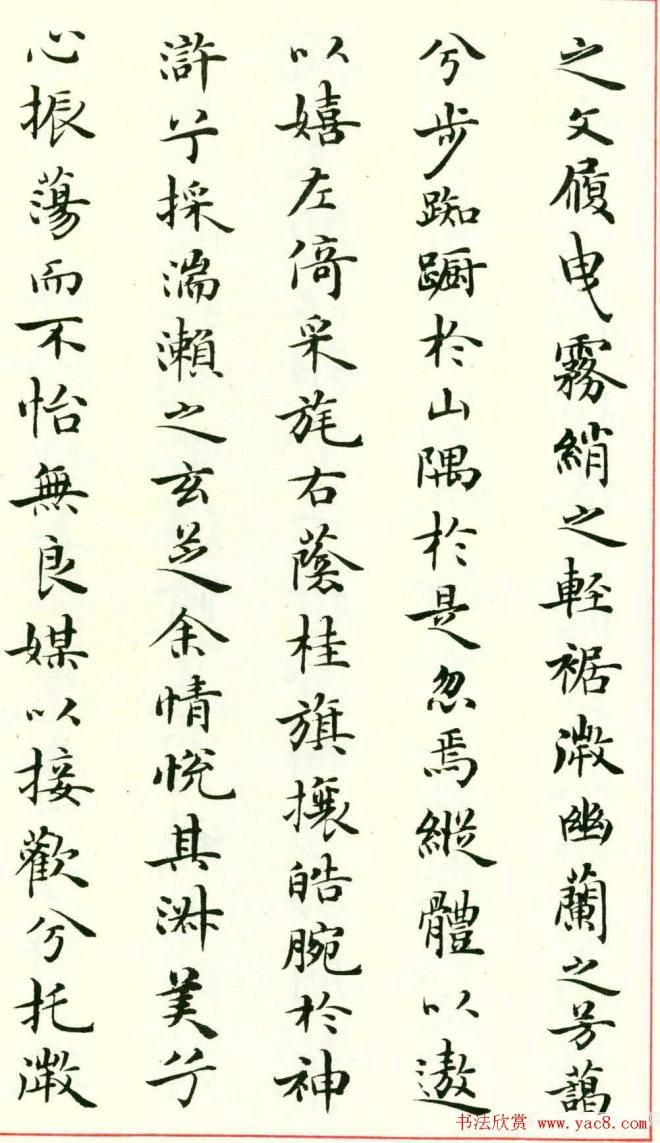 之文履曳霧綃之輕裾微幽蘭之芳藹
兮步踟躕於山隅於是忽焉縱體以遨
以嬉左倚采旄右蔭桂旗攘皓腕於神
滸兮採湍瀨之玄芝余情悅其淑美兮
心振蕩而不怡無良媒以接歡兮托微
书法欣赏 www.yac8.com